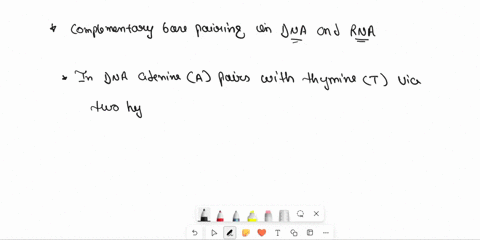 * Complementary base pairing in DNA and RNA
* In DNA adenine (A) pairs with thymine (T) via
two hy